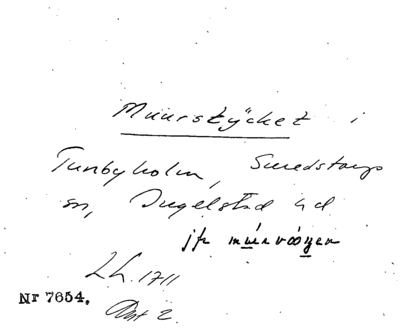 Muurstÿcket i
Tunbyholm, Smedstorps
sn, Ingelstad hd
jfr múrvä̱gen
LL. 1711
Akt 2.
Nr 7654.